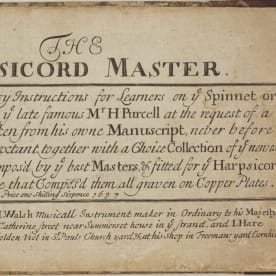 THE
SICORD MASTER.
ry Instructions for Learners on yᵉ Spinnet or
yᵉ late famous Mʳ H Purcell at the request of a
ten from his owne Manuscript, never before
extant, together with a Choice Collection of yᵉ newest
ompos'd by yᵉ best Masters, & fitted for yᵉ Harpsicord
e that Compos'd them all graven on Copper Plates
Price one Shilling Sixpence 1697
I. Walsh Musicall Instrument maker in Ordinary to his Majesty
Catherine street near Summerset house in yᵉ strand, and I. Hare
olden Viol in Sᵗ Pauls Church yard, & at his Shop in Freemans yard Cornhill